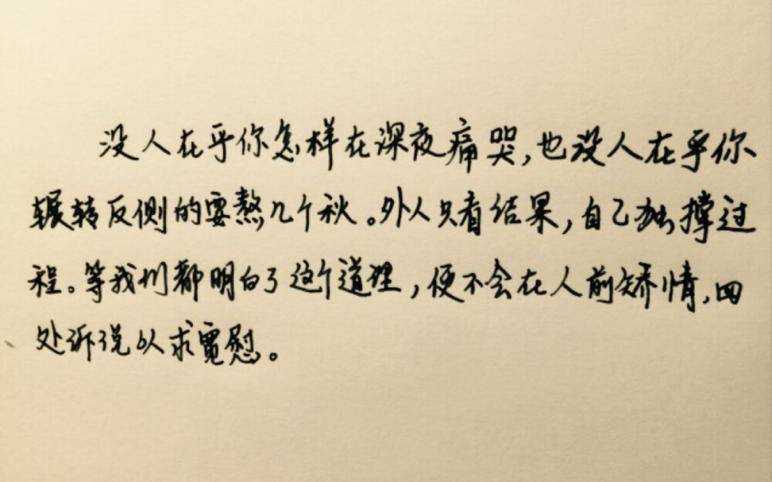 没人在乎你怎样在深夜痛哭,也没人在乎你
辗转反侧的要熬几个秋。外人只看结果,自己独撑过
程。等我们都明白了这个道理,便不会在人前矫情,四
处诉说以求宽慰。